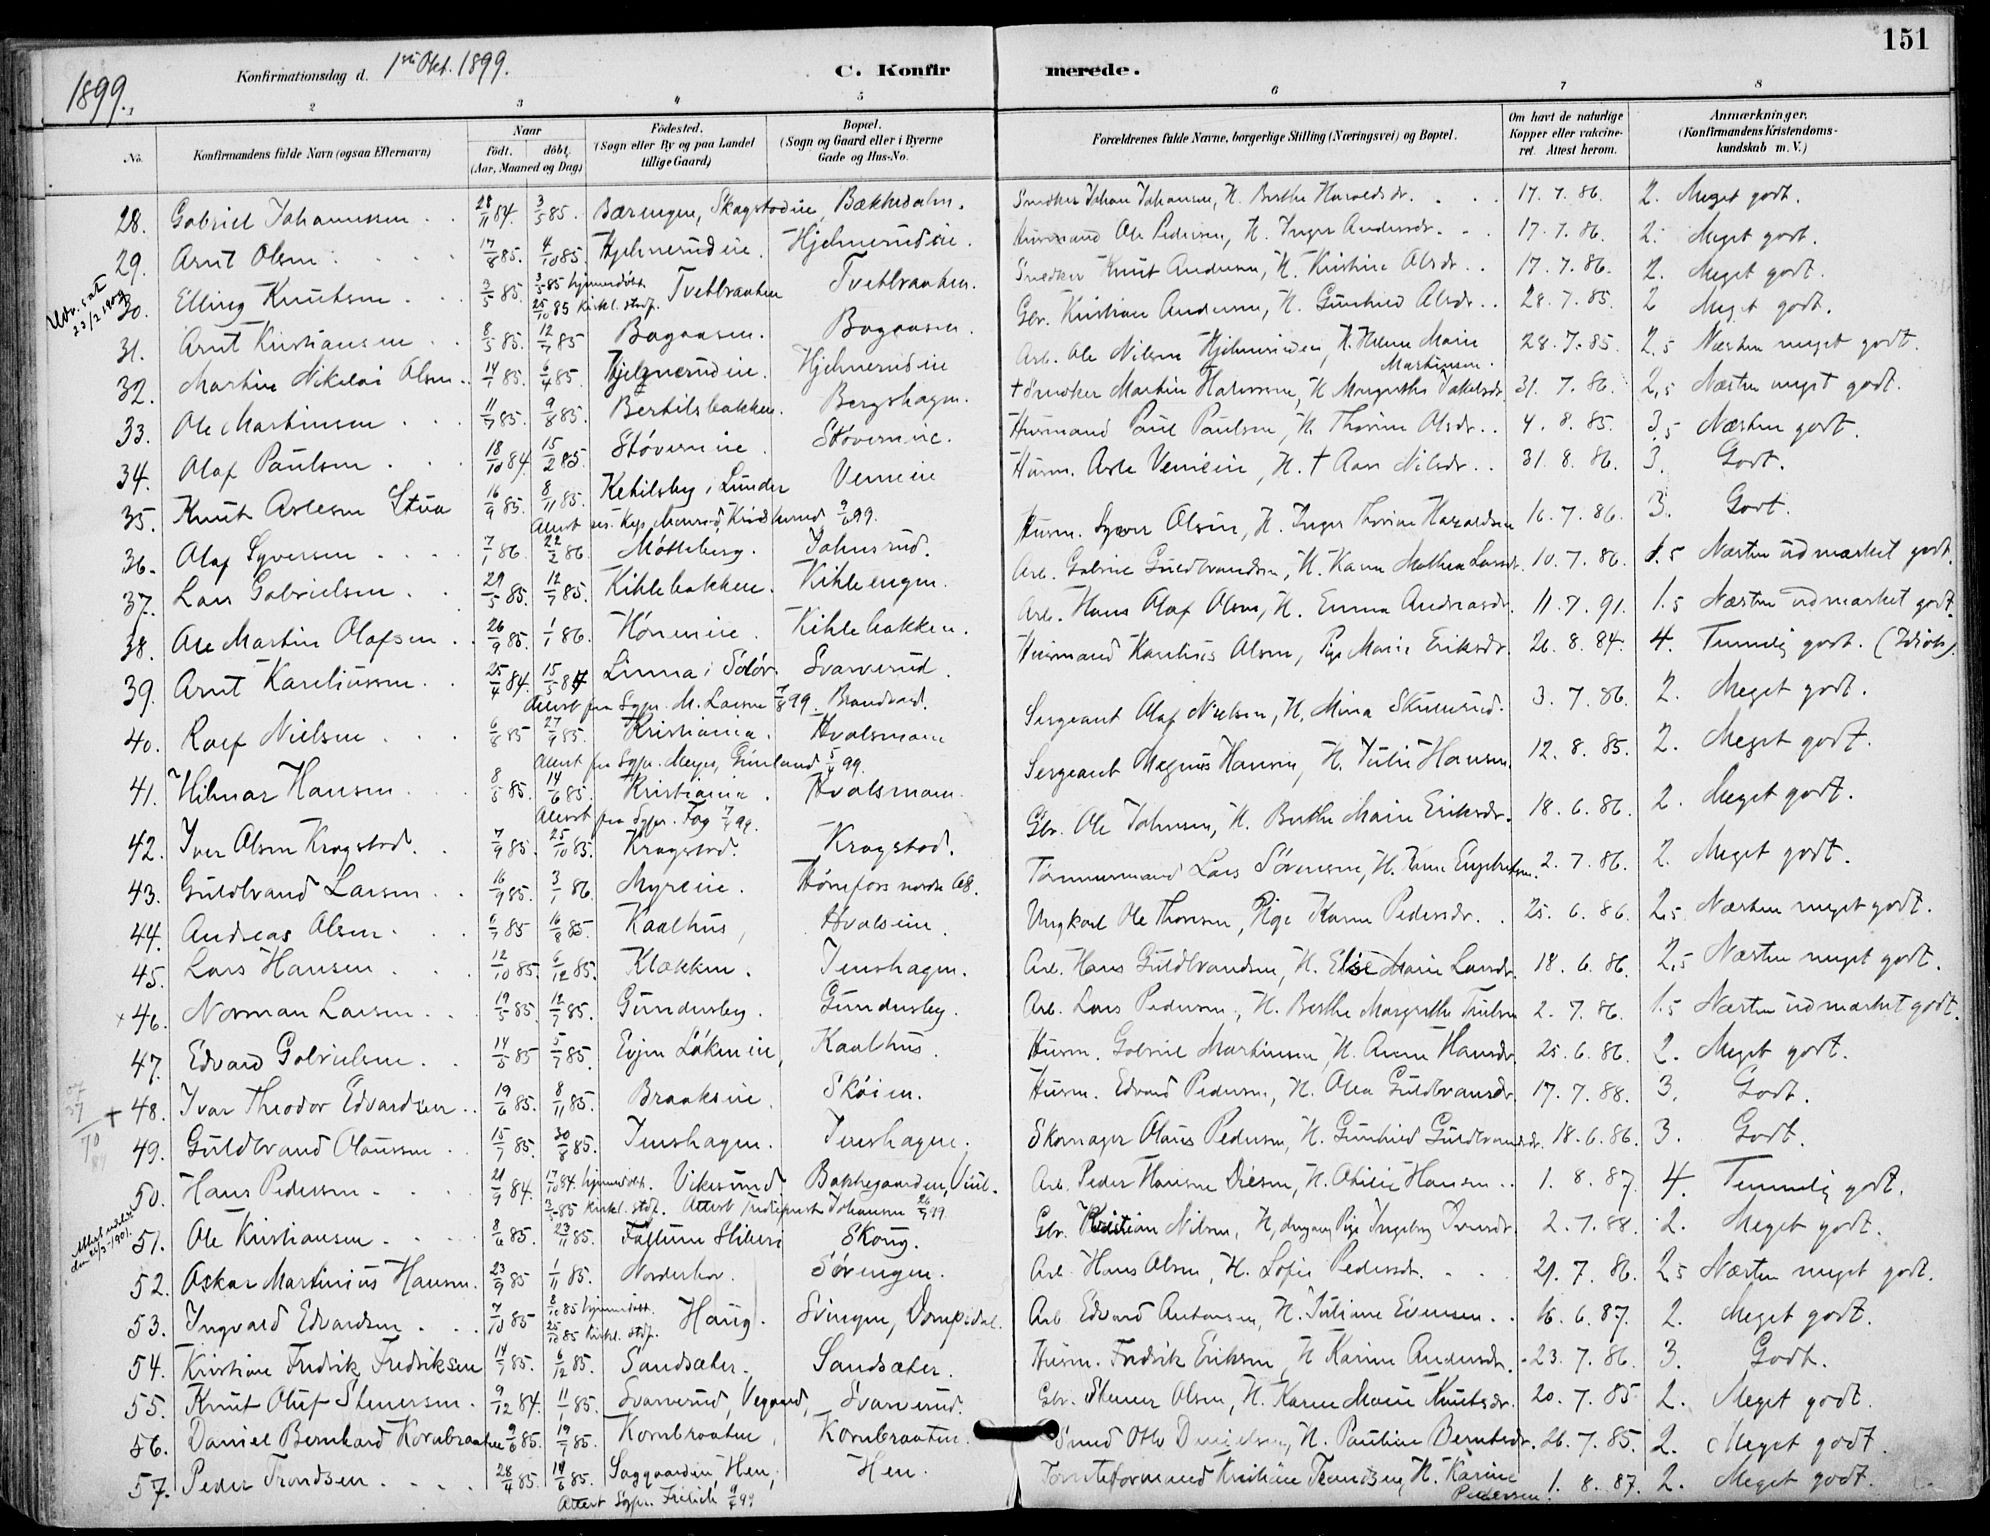 151
1899.
Konfirmationsdag d. 1ste Okt. 1899.
C. Konfirmerede.
2 3 4 5 6 7 8
No. Konfirmandens fulde Navn (ogsaa Efternavn) Naar født. døbt. (Aar, Maaned og Dag) Fødested. (Sogn eller By og paa Landet tillige Gaard) Bopæl. (Sogn og Gaard eller i Byerne Gade og Hus-No. Forældrenes fulde Navne, borgerlige Stilling (Næringsvei) og Bopæl. Om havt de naturlige Kopper eller vakcineret. Attest herom. Anmærkninger. (Konfirmandens Kristendomskundskab m. V.)
28. Gabriel Johannessen 28/11 84. 3/5 85. Bærengen, Skagstadeie, Bakkedalen. Snedker Johan Johansen, H. Berthe Haraldsdr. 17.7.86. 2. Meget godt.
29. Arnt Olsen 17/8 85. 4/10 85. Hjelmerudeie. Hjelmerudeie. Husmand Ole Pedersen, H. Inger Andersdr. 17.7.86. 2. Meget godt.
30. Elling Knutsen 3/5 85. 3/5 85 hjemmedøbt. 25/10 85 kirkel. stadf. Tvetbraaten Tvetbraaten. Snedker Knut Andersen, H. Kristine Olsdr. 17.7.86. 2. Meget godt.
31. Arnt Kristiansen 8/5 85. 12/7 85 Bagaasen. Bagaasen. Gbr. Kristian Andersen, H. Gunhild Olsdr. 28.7.85. 2 Meget godt.
32. Martin Nikolai Olsen 14/1 85. 6/4 85. Hjelmerudeie. Hjelmerudeie Arb. Ole Nilsen Hjelmerudeie, H. Helene Marie Martinsen. 28.7.85. 2,5 Næsten meget godt.
33. Ole Martinsen 11/7 85. 9/8 85. Bertilsbakken. Bergshagen. † Snedker Martin Halvorsen, H. Margrethe Jakobsdr. 31.7.86. 2,5 Næsten meget godt.
34. Olaf Paulsen 18/10 84 15/2 85. Støverneie. Støverneie. Husmand Paul Paulsen, H. Thorine Olsdr. 4.8.85. 3,5 Næsten godt.
35. Knut Arlesen Stua 16/9 85. 8/11 85. Ketilsby i Lunder Verneie Husm. Arle Verneie, H. † Aase Nilsdr. 31.8.86. 3. Godt.
36. Olaf Syversen 7/1 86. 22/2 86. Møtteberg. Jahnsrud. Husm. Syver Olsen, H. Inger Thorine Haraldsen 16.7.86. 3. Godt.
37. Lars Gabrielsen 29/5 85. 12/7 85. Kihlebakken. Kihleengen. Arb. Gabriel Guldbrandsen, H. Karen Mathea Larsdr. 10.7.86. 1.5 Næsten udmærket godt.
38. Ole Martin Olafsen 26/9 85. 1/1 86. Hønneie. Kihlebakken. Arb. Hans Olaf Olsen, H. Emma Andreasdr. 11.7.91. 1.5 Næsten udmærket godt.
39. Arnt Kareliussen 25/4 84. 15/5 84 Linna i Solør. Svarverud. Husmand Karelius Olsen, Pige Marie Eriksdr. 26.8.84. 4. Temmelig godt. (Idiot).
40. Rolf Nielsen 6/8 85 27/9 85. Kristiania. Hvalsmoen Sergeant Olaf Nielsen, H. Mina Skuserud. 3.7.86. 2. Meget godt.
41. Hilmar Hansen 8/5 85. 14/6 85. Kristiania. Hvalsmoen. Sergeant Magnus Hansen, H. Julie Hansen. 12.8.85. 2. Meget godt.
42. Iver Olsen Kragstad. 7/9 85. 25/10 85. Kragstad. Kragstad. Gbr. Ole Johnsen, H. Berthe Marie Eriksdr. 18.6.86. 2. Meget godt.
43. Guldbrand Larsen 16/9 85. 3/1 86 Myreie. Hønefoss nordre Als. Tømmermand Lars Sørensen, H. 2.7.86. 2. Meget godt.
44. Andreas Olsen 6/7 85 16/8 85. Kaalhus, Hvalseie. Ungkarl Ole Thoresen, Pige Karen Pedersdr. 25.6.86. 2,5 Næsten meget godt.
45. Lars Hansen 12/10 85. 6/12 85. Klækken. Jenshagen. Arb. Hans Guldbrandsen, H. Else Marie Larsdr. 18.6.86. 2,5 Næsten meget godt.
46. Norman Larsen 19/5 85. 12/7 85. Gundersby. Gundersby. Arb. Lars Pedersen, H. Berthe Margrethe Trulsen 2.7.86. 1.5 Næsten udmærket godt.
47. Edvard Gabrielsen 14/5 85 5/7 85. Evjen Løkeneie, Kaalhus. Husm. Gabriel Martinsen, H. Anne Hansdr. 25.6.86. 2. Meget godt.
48. Ivar Theodor Edvardsen 19/6 85. 8/11 85. Braakeneie. Skøien. Husm. Edvard Pedersen, H. Olea Guldbransdr. 17.7.88. 3. Godt.
49. Guldbrand Olaussen 15/7 85. 30/8 85. Jenshagen. Jenshagen. Skomager Olaus Pedersen, H. Gunhild Guldbrandsdr. 18.6.86. 3. Godt.
50. Hans Pedersen 21/9 84. 17/10 84. hjemmedøbt. 3/5 85 kirkel. stdf. Vikesund Bakkegaarden, Veul. Arb. Peder Hansen Diesen, H. Hansen 1.8.87. 4. Temmelig godt.
51. Ole Kristiansen 8/6 85. 23/11 85. Follum Sliberi Skoug. Gbr. Kristian Nilsen, H, Pige Ingeborg Iversdr. 2.7.88. 2. Meget godt.
52. Oskar Martinius Hansen 23/9 85 1/11 85. Norderhov. Sørengen. Arb. Hans Olsen, H. Sofie Pedersdr. 29.7.86. 2,5 Næsten meget godt.
53. Ingvald Edvardsen 7/10 85 8/10 85 hjemmedøbt. 25/10 85 kirkel. stdf. Haug. Svingen, Arb. Edvard Antonsen, H. Juliane Evensen. 16.6.87. 2. Meget godt.
54. Kristian Fredrik Fredriksen 14/7 85. 6/12 85. Sandsæter. Sandsæter. Husm. Fredrik Eriksen, H Karine Andersdr. 23.7.86. 3. Godt.
55. Knut Oluf Stenersen 9/12 84. 11/1 85. Svarverud, Vegaard, Svarverud. Gbr. Stener Olsen, H. Karen Marie Knutsdr. 20.7.85 2. Meget godt.
56. Daniel Bernhard Kornbraaten 9/6 85. 19/7 85. Kornbraaten, Kornbraaten. Smed Otto Danielsen, H. Pauline Berntsdr. 26.7.85. 2. Meget godt.
57. Peder Trondsen 28/4 85. 14/6 85. Saggaarden, Hen, Hen. Tomteformand Kristian Trondsen, H. Karine Pedersen. 1.8.87. 2. Meget godt.